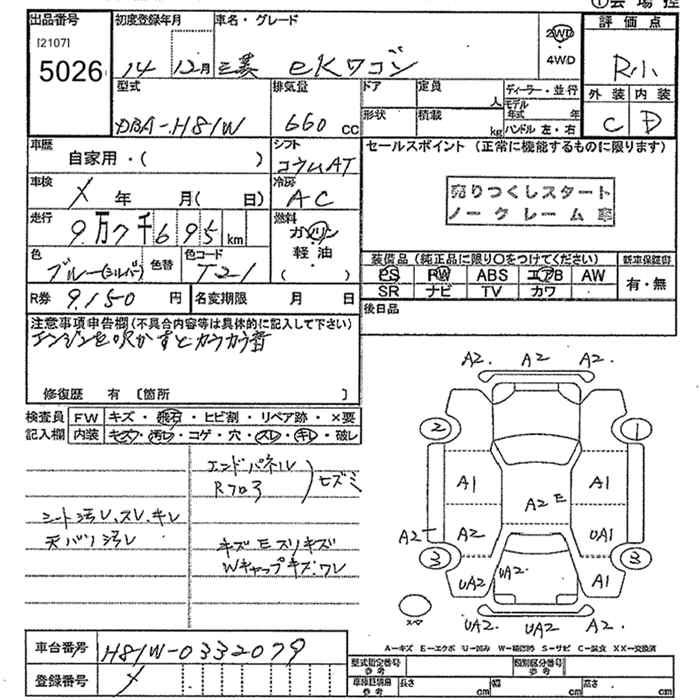 ①会場控
出品番号 初度登録年月 車名・グレード 2WD 評価点
[2107]
5026 14 12月 三菱 eKワゴン 4WD R小
型式 排気量 ドア 定員 人 ディーラー・並行 外装 内装
DBA-H81W 660cc 形状 積載 kg モデル年式 年 C D
ハンドル 左・右
車歴 自家用・( ) シフト コラムAT セールスポイント (正常に機能するものに限ります)
車検 メ 年 月(日) 冷房 AC 売りつくしスタート
ノークレーム車
走行 9万7千695km 燃料 ガソリン
軽油
( )
色 ブルー(シルバ) 色替 色コード T21
装備品(純正品に限り○をつけてください) 新車保証書
PS PW ABS エアB AW 有・無
SR ナビ TV カワ
R券 9,150円 名変期限 月 日 後日品
注意事項申告欄(不具合内容等は具体的に記入して下さい)
エンジンを吹かすとカラカラ音
修復歴 有 〔箇所 〕
検査員 FW キズ・飛石・ヒビ割・リペア跡・×要
記入欄 内装 キズ・汚レ・コゲ・穴・スレ・キレ・破レ
エンドパネル
Rフロア ヒズミ
シート汚レ、スレ、キレ
天バリ汚レ
キズ Eスリキズ
Wキャップキズ・ワレ
A2. A2 A2.
2 1
A1 A1
A2E
A2 A2 UA1
3 3
UA2 UA2 A1
スペア
UA2 UA2 A2.
A-キズ E-エクボ U-凹み W-補修跡 S-サビ C-腐食 XX-交換済
車台番号 H81W-0332079
登録番号 メ
型式指定番号 参考 類別区分番号 参考
車検証記載 参考 長さ cm 幅 cm 高さ cm